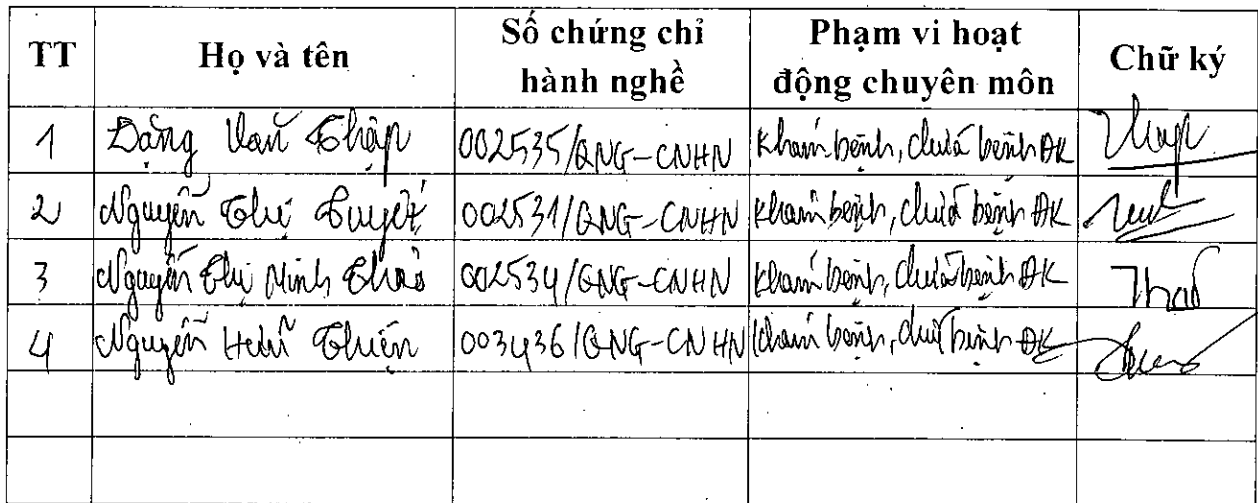 TT Họ và tên Số chứng chỉ hành nghề Phạm vi hoạt động chuyên môn Chữ ký
1 Đặng Văn Thập 002535/QNG-CNHN Khám bệnh, chữa bệnh ĐK Thập
2 Nguyễn Thị Tuyết 002531/QNG-CNHN Khám bệnh, chữa bệnh ĐK
3 Nguyễn Thị Minh Thảo 002534/QNG-CNHN Khám bệnh, chữa bệnh ĐK Thảo
4 Nguyễn Hữu 003436/QNG-CNHN Khám bệnh, chữa bệnh ĐK